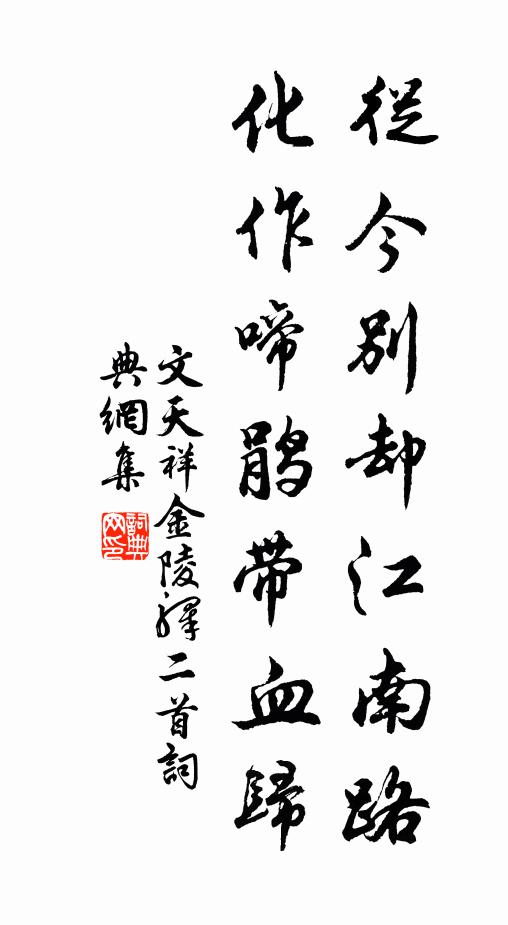 從今別却江南路
化作啼鹃帶血歸
文天祥金陵驛二首詞
典網集
詞典
网印